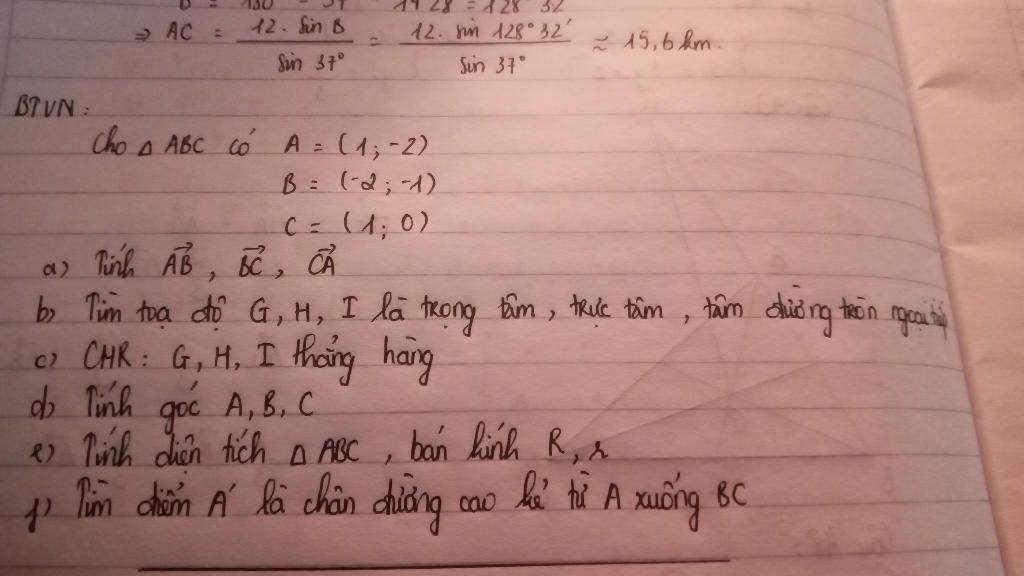 B = 180° - 37° - 14°28' = 128°32'
⇒ AC = 12. sin B / sin 37° = 12. sin 128°32' / sin 37° ≈ 15,6 km.
BTVN:
Cho △ ABC có A = (1; -2)
B = (-2; -1)
C = (1; 0)
a) Tính AB⃗, BC⃗, CA⃗
b) Tìm toạ độ G, H, I là trọng tâm, trực tâm, tâm đường tròn ngoại tiếp
c) CMR: G, H, I thẳng hàng
d) Tính góc A, B, C
e) Tính diện tích △ ABC, bán kính R, r
f) Tìm điểm A' là chân đường cao kẻ từ A xuống BC